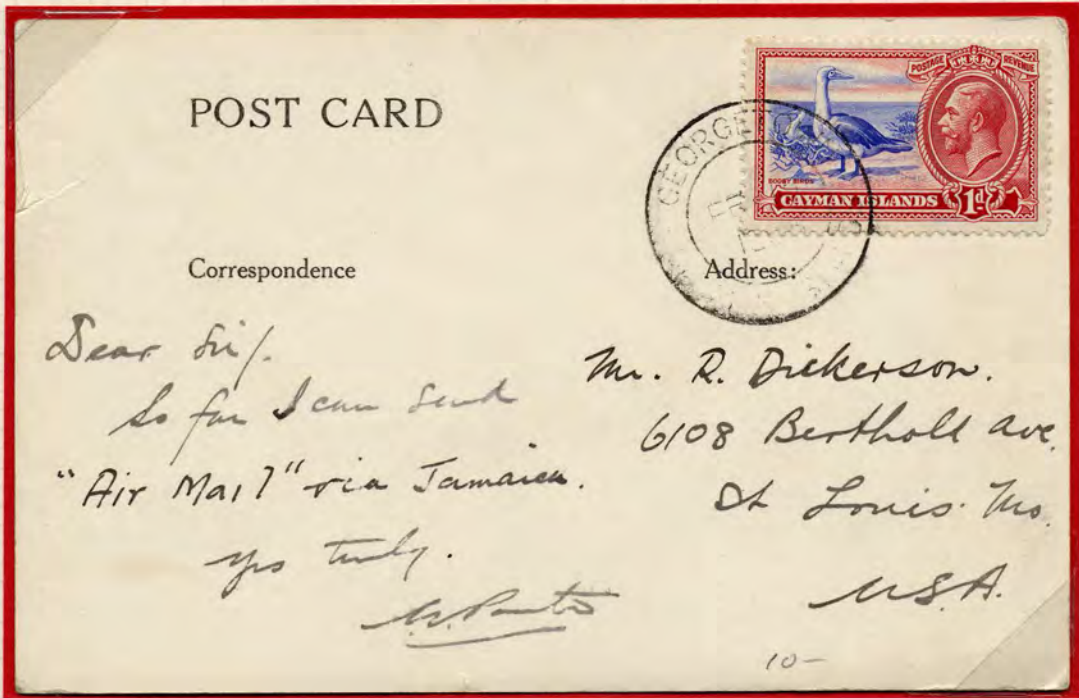 POST CARD
POSTAGE REVENUE
BOOBY BIRDS
CAYMAN ISLANDS 1d
GEORGETOWN
Correspondence
Address:
Dear Sir/.
So far I can send
"Air Mail" via Jamaica.
Yrs truly.
Mr. R. Dickerson.
6108 Berthold Ave.
St Louis. Mo.
U.S.A.
10-